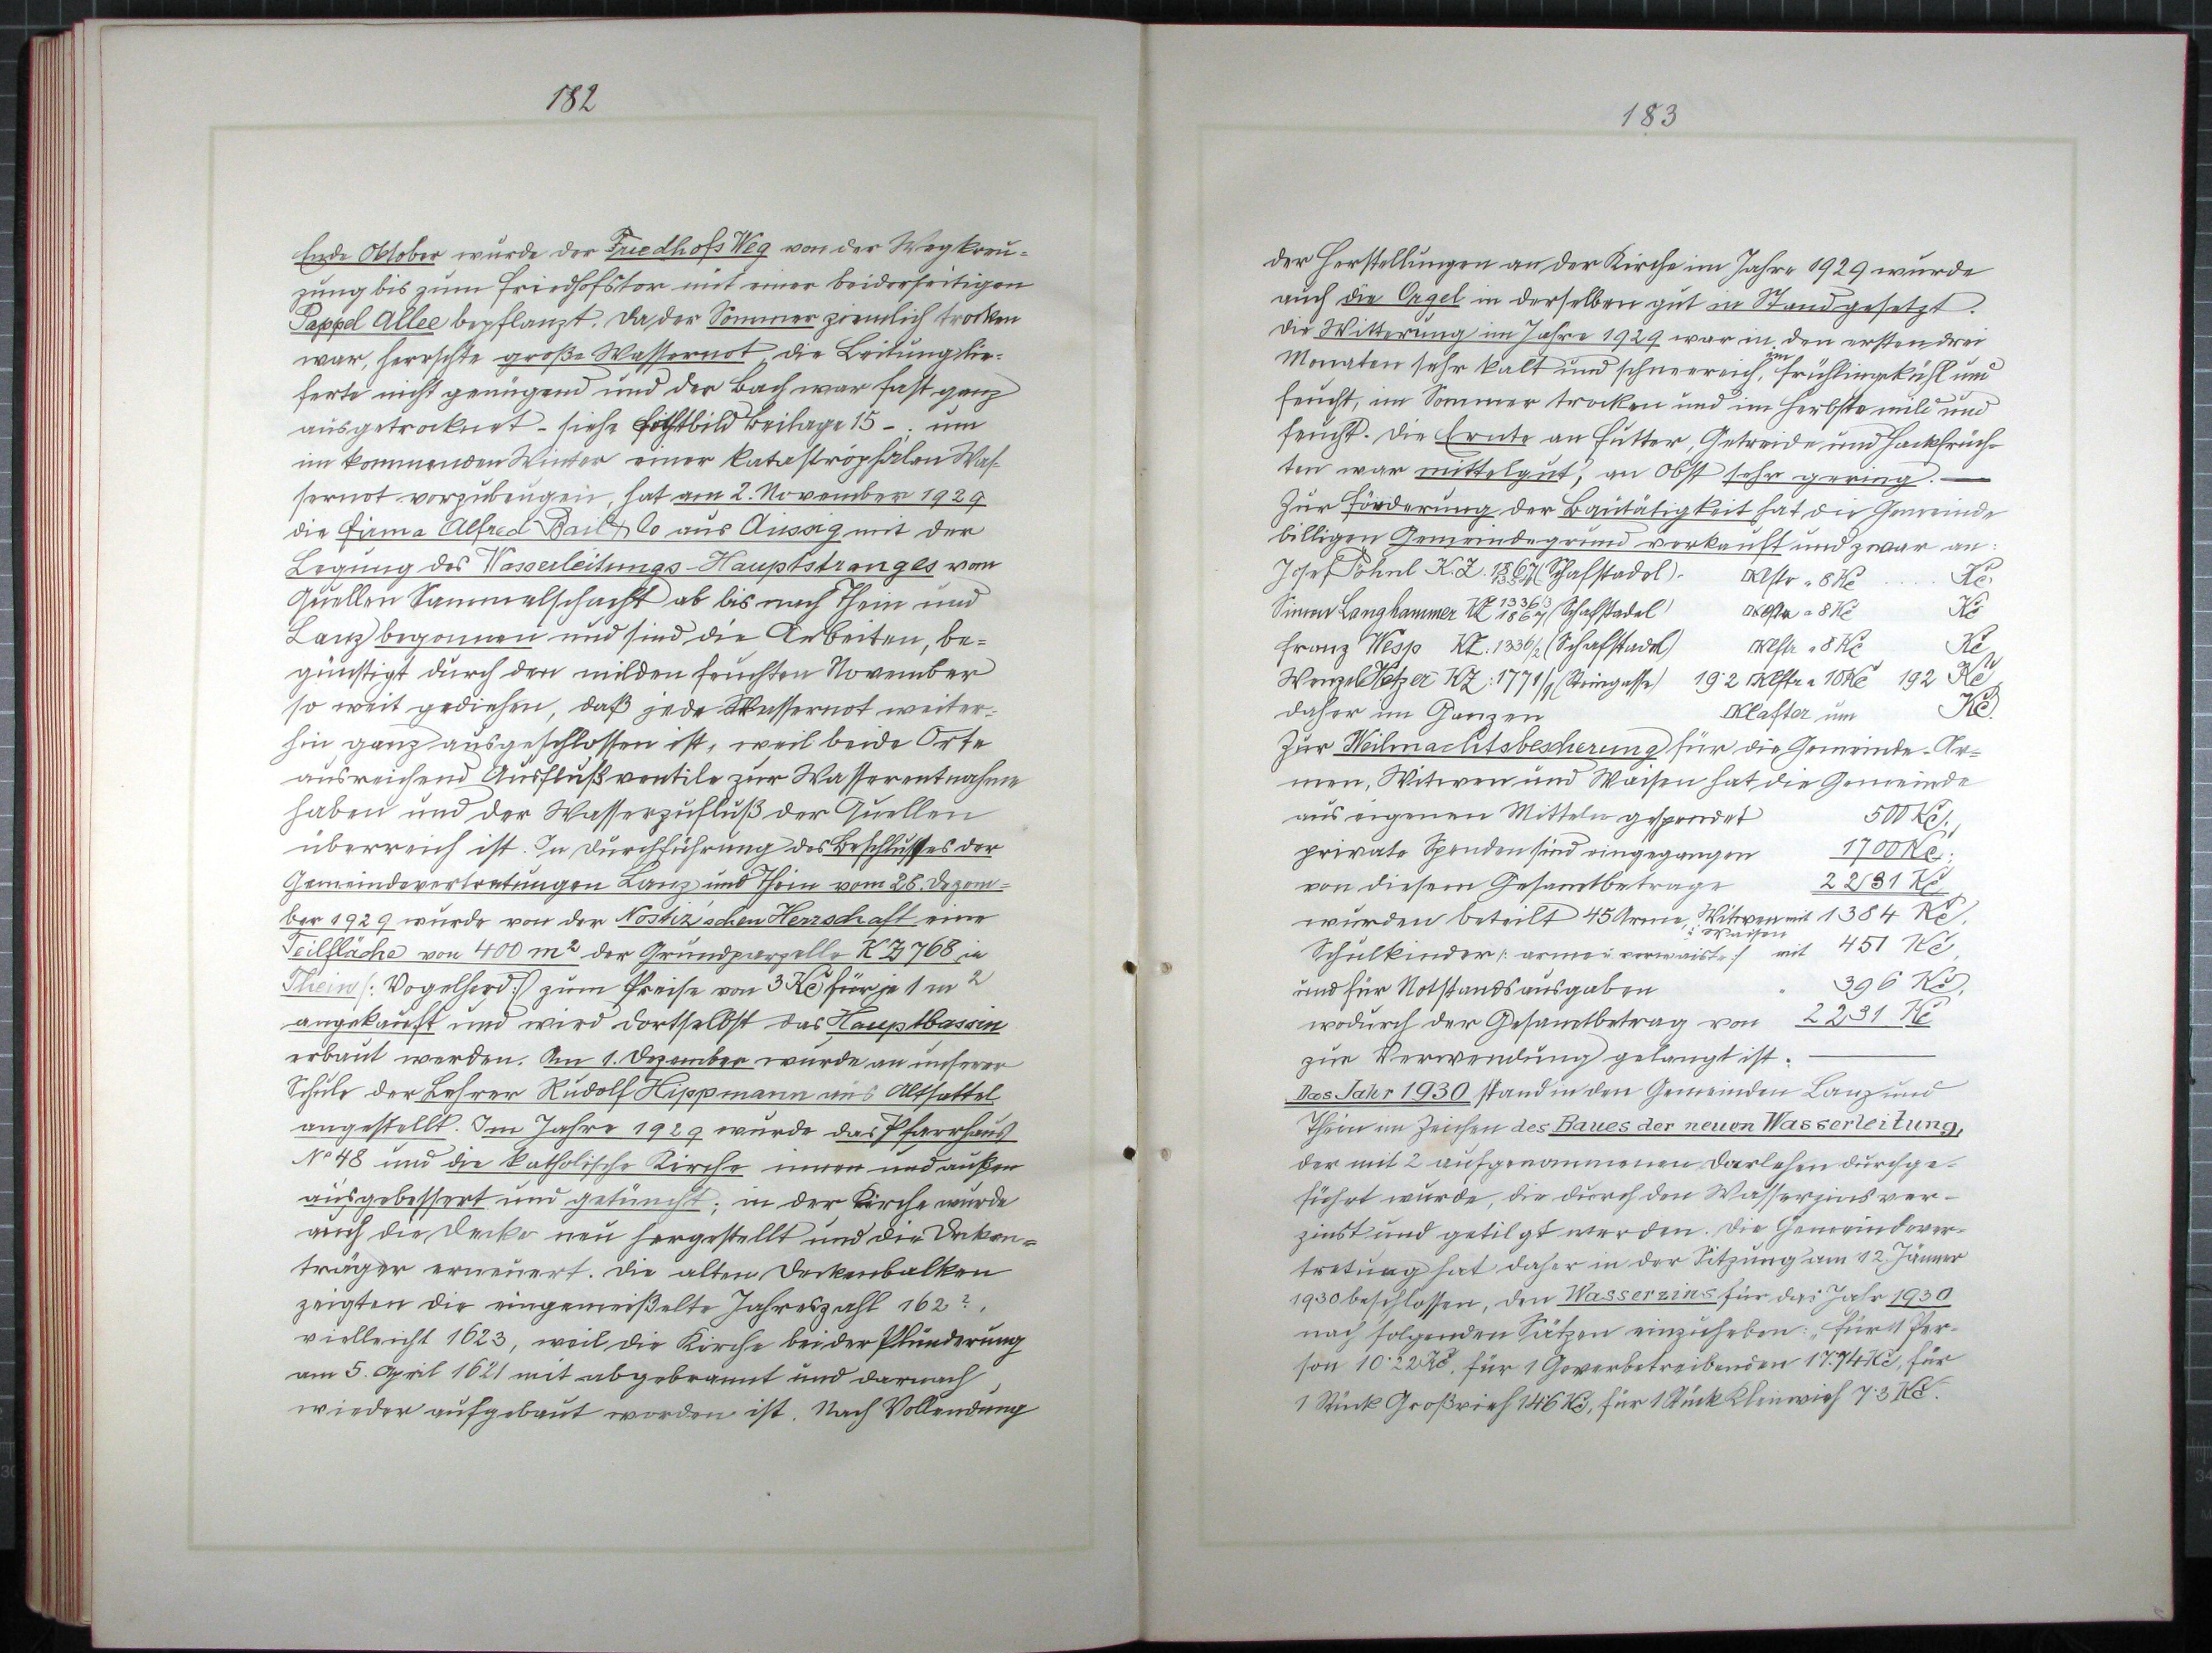 182
Ende Oktober wurde der Friedhofs Weg von der Wegkreu-
zung bis zum Friedhofstor mit einer beiderseitigen
Pappel Allee bepflanzt. Da der Sommer ziemlich trocken
war, herrschte große Wassernot, die Leitung lie-
ferte nicht genügend und der Bach war fast ganz
ausgetrocknet - siehe Lichtbild Beilage 15 -. um
im kommenden Winter einer katastrophalen Was-
sernot vorzubeugen, hat am 2. November 1929
die Firma Alfred Bail & Co aus Aussig mit der
Legung des Wasserleitungs-Hauptstranges vom
Quellen Sammelschacht ab bis nach Thein und
Lanz begonnen und sind die Arbeiten, be-
günstigt durch den milden feuchten November
so weit gediehen, daß jede Wassernot weiter-
hin ganz ausgeschlossen ist, weil beide Orte
ausreichend Ausflußventile zur Wasserentnahme
haben und der Wasserzufluß der Quellen
überreich ist. In Durchführung des Beschlusses der
Gemeindevertretungen Lanz und Thein vom 26. Dezem-
ber 1929 wurde von der Nostiz'schen Herrschaft eine
Teilfläche von 400 m² der Grundparzelle KZ 768 in
Thein /: Vogelherd :/ zum Preise von 3 Kč für je 1 m²
angekauft und wird dortselbst das Hauptbassin
erbaut werden. Am 1. Dezember wurde an unserer
Schule der Lehrer Rudolf Hippmann aus Altsattel
angestellt. Im Jahre 1929 wurde das Pfarrhaus
№ 48 und die katholische Kirche innen und außen
ausgebessert und getüncht; in der Kirche wurde
auch die Decke neu hergestellt und die Decken-
träger erneuert. Die alten Deckenbalken
zeigten die eingemeißelte Jahreszahl 162?,
vielleicht 1623, weil die Kirche bei der Plünderung
am 5. April 1621 mit abgebrannt und darnach
wieder aufgebaut worden ist. Nach Vollendung
183
der Herstellungen an der Kirche im Jahre 1929 wurde
auch die Orgel in derselben gut in Stand gesetzt.
Die Witterung im Jahre 1929 war in den ersten drei
Monaten sehr kalt und schneereich, im Frühling kühl und
feucht, im Sommer trocken und im Herbste mild und
feucht. Die Ernte an Futter, Getreide und Hackfrüch-
ten war mittelgut, an Obst sehr gering. —
Zur Förderung der Bautätigkeit hat die Gemeinde
billigen Gemeindegrund verkauft und zwar an:
Josef Pöhnl K.Z. 1867/ (Schafstadel). Klftr a 8 Kč .... Kč
Simon Langhammer KZ 1336/3 1867/ (Schafstadel) Klftr a 8 Kč Kč
Franz Wesp KZ. 1336/2 (Schafstadel) Klftr a 8 Kč Kč
Wenzel Hetzer KZ: 1771/1 (Steingasse) 19·2 Klftr a 10 Kč 192 Kč
daher im Ganzen Klafter um Kč.
Zur Weihnachtsbescherung für die Gemeinde-Ar-
men, Witwen und Waisen hat die Gemeinde
aus eigenen Mitteln gespendet 500 Kč,
private Spenden sind eingegangen 1700 Kč;
von diesem Gesamtbetrage 2231 Kč
wurden beteilt 45 Arme, Witwen u. Waisen mit 1384 Kč,
Schulkinder /: arme u. verwaiste :/ mit 451 Kč,
und für Notstandsausgaben " 396 Kč,
wodurch der Gesamtbetrag von 2231 Kč
zur Verwendung gelangt ist. —
Das Jahr 1930 stand in den Gemeinden Lanz und
Thein im Zeichen des Baues der neuen Wasserleitung,
der mit 2 aufgenommenen Darlehen durchge-
führt wurde, die durch den Wasserzins ver-
zinst und getilgt werden. Die Gemeindever-
tretung hat daher in der Sitzung am 12. Jänner
1930 beschlossen, den Wasserzins für das Jahr 1930
nach folgenden Sätzen einzuheben: „für 1 Per-
son 10·22 Kč, für 1 Gewerbetreibenden 17·74 Kč, für
1 Stück Großvieh 14·6 Kč, für 1 Stück Kleinvieh 7·3 Kč.